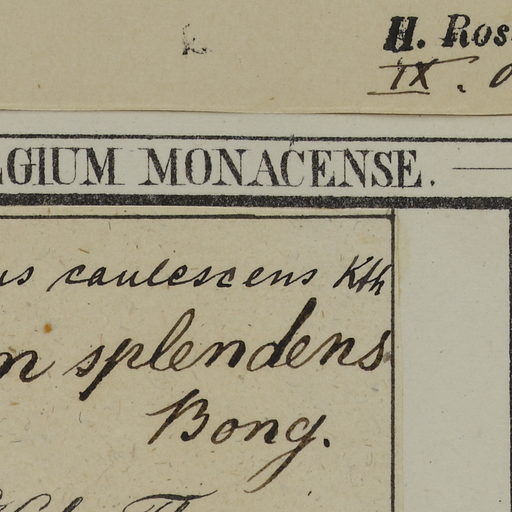 H. Ros
IX.
LGIUM MONACENSE.
us caulescens Kth
n splendens
Bong.